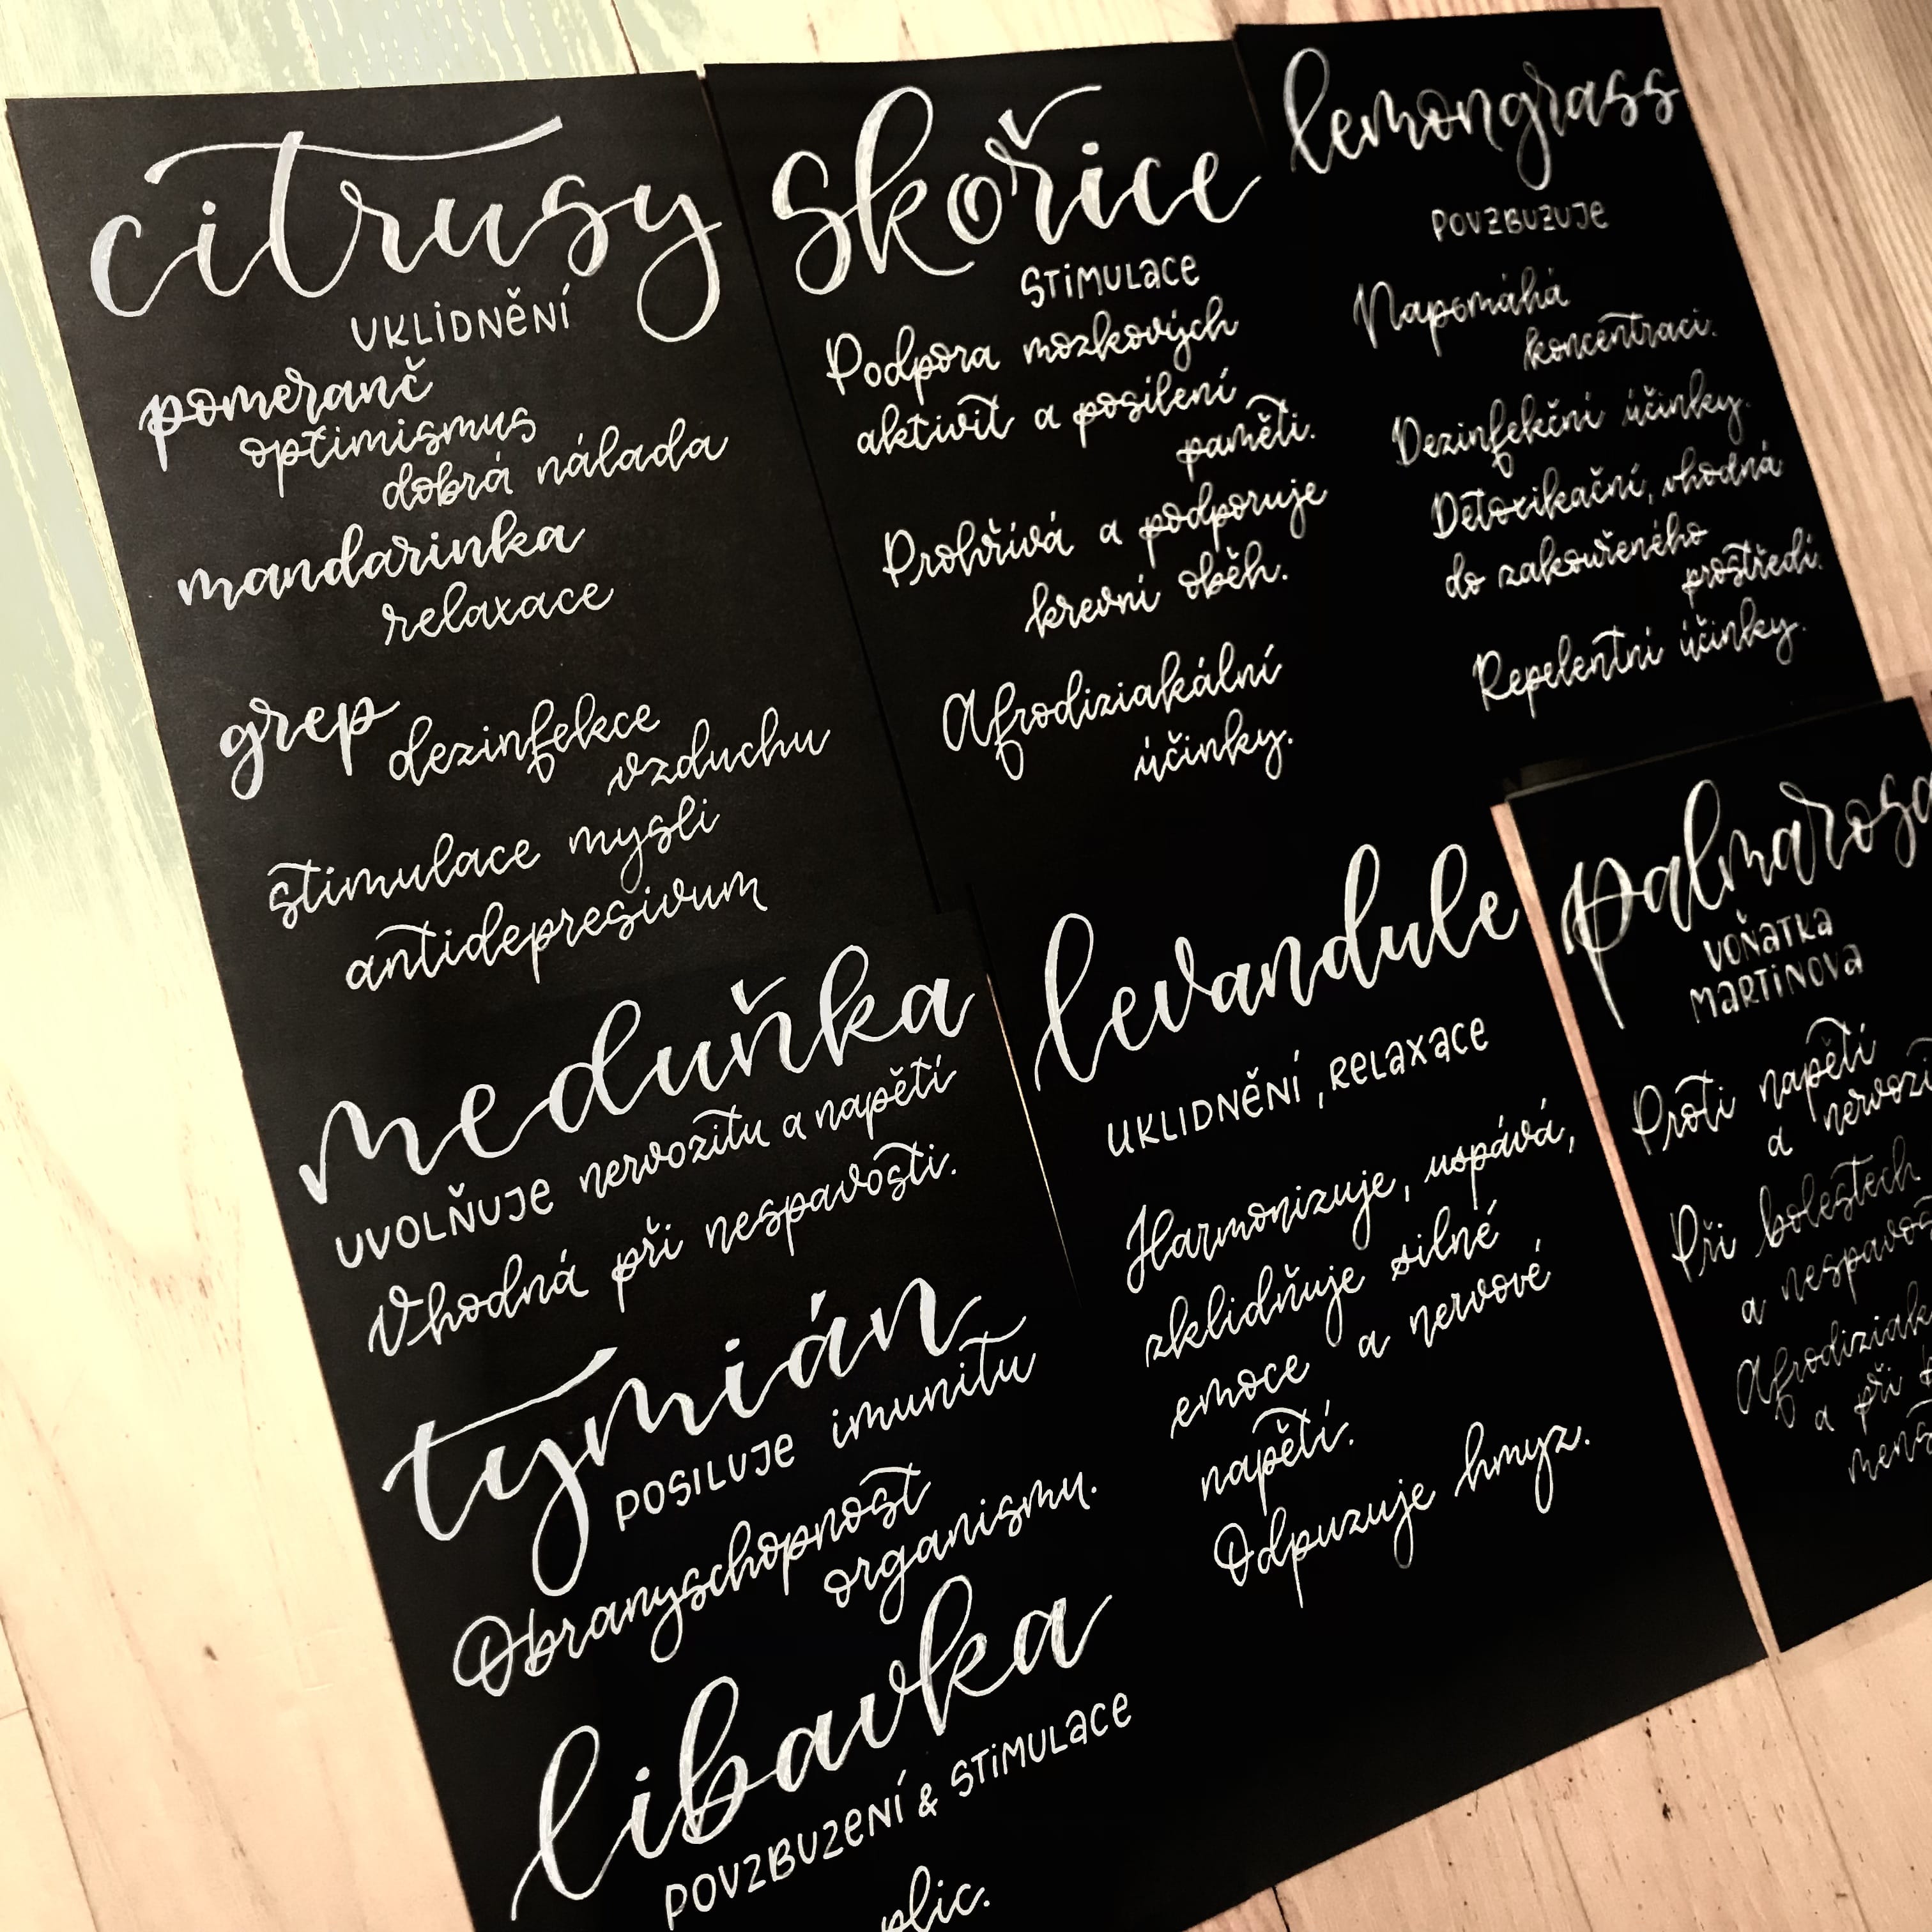 citrusy
UKLIDNĚNÍ
pomeranč
optimismus
dobrá nálada
mandarinka
relaxace
grep
dezinfekce
vzduchu
stimulace mysli
antidepresivum
skořice
STIMULACE
Podpora mozkových
aktivit a posílení
paměti.
Prohřívá a podporuje
krevní oběh.
Afrodiziakální
účinky.
lemongrass
POVZBUZUJE
Napomáhá
koncentraci.
Dezinfekční účinky.
Detoxikační, vhodná
do zakouřeného
prostředí.
Repelentní účinky.
meduňka
UVOLŇUJE nervozitu a napětí
Vhodná při nespavosti.
tymián
POSILUJE imunitu
Obranyschopnost
organismu.
libavka
POVZBUZENÍ & STIMULACE
plic.
levandule
UKLIDNĚNÍ, RELAXACE
Harmonizuje, uspává,
zklidňuje silné
emoce a nervové
napětí.
Odpuzuje hmyz.
palmarosa
VOŇATKA
MARTINOVA
Proti napětí
a
Při bolestech
a
a při